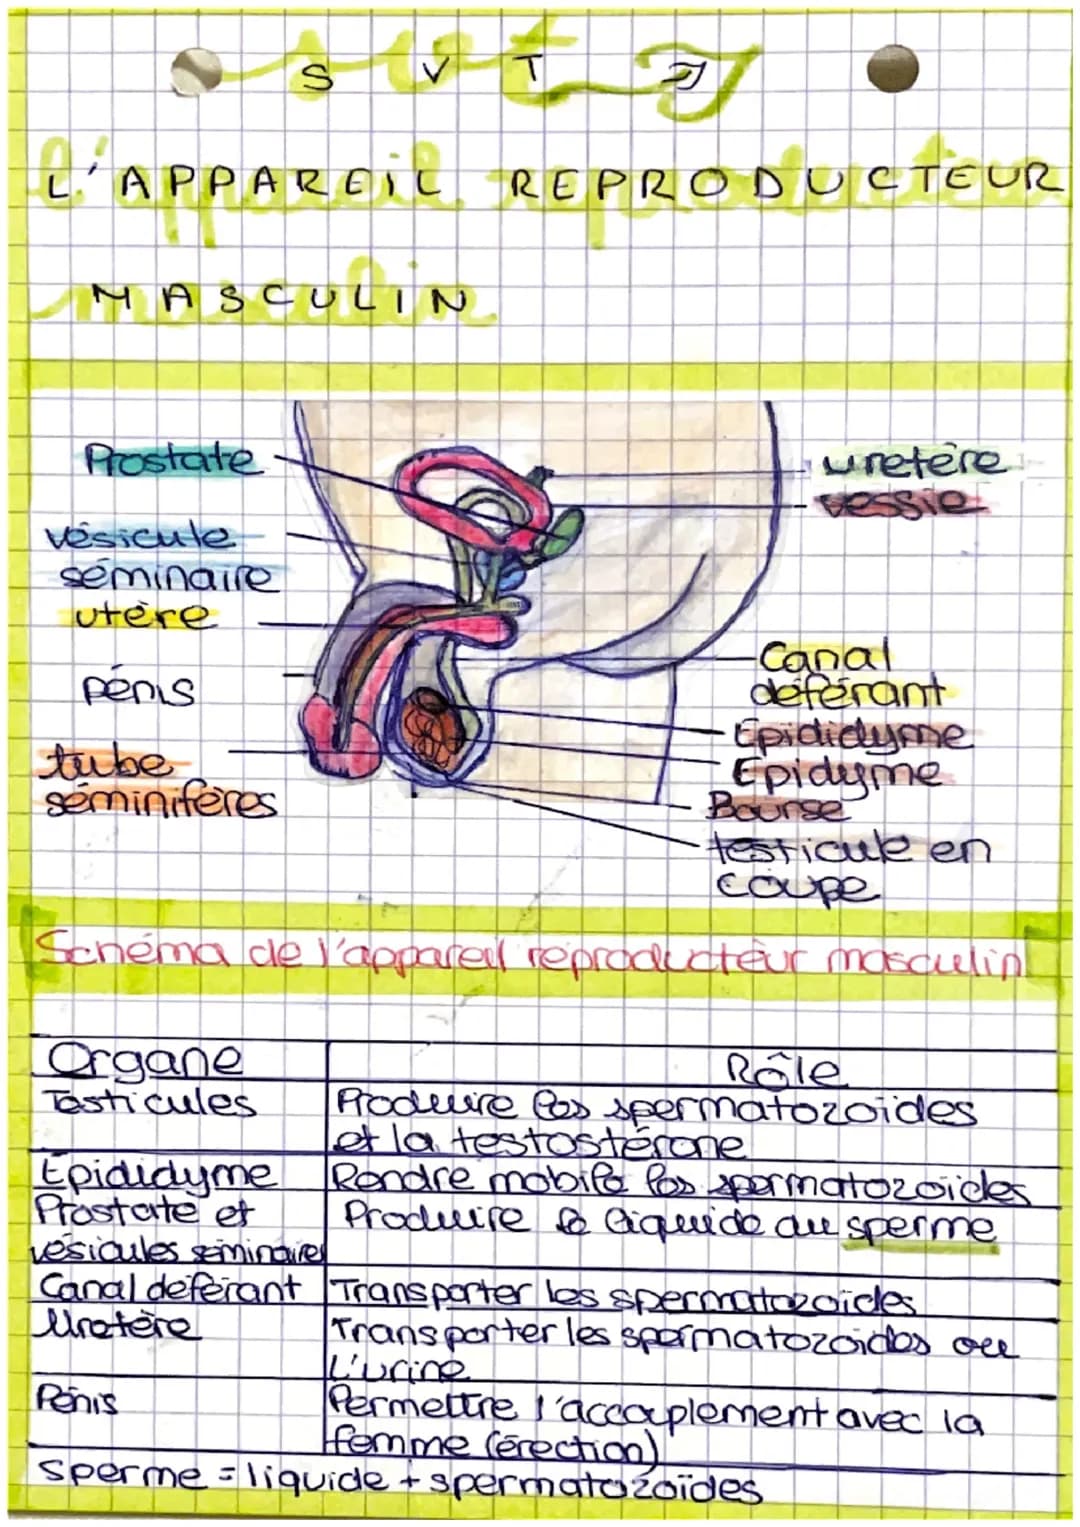 SVT
L'APPAREIL REPRODUCTEUR
MASCULIN
Prostate
vésicule
séminaire
utère
pénis
tube
séminifères
uretère
vessie
Canal
déférant
Epididyme
Epidyme
Bourse
testicule en
coupe
Schéma de l'appareil reproducteur masculin
Organe
Rôle
Testicules
Produire les spermatozoïdes
et la testostérone
Epididyme
Rendre mobile les spermatozoïdes
Prostate et
vésicules séminaires
Produire le liquide du sperme
Canal déférant
Transporter les spermatozoïdes
Uretère
Transporter les spermatozoïdes ou
L'urine
Pénis
Permettre l'accouplement avec la
femme (érection)
sperme = liquide + spermatozoïdes